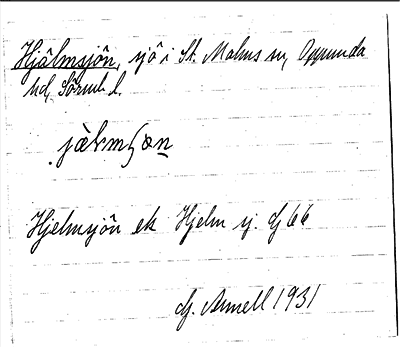 Hjälmsjön, sjö i St. Malms sn, Oppunda
hd, Sörml. l.
jälmʃɔn
Hjelmsjön ek Hjelm sj. dj 66
dj. Annell 1931